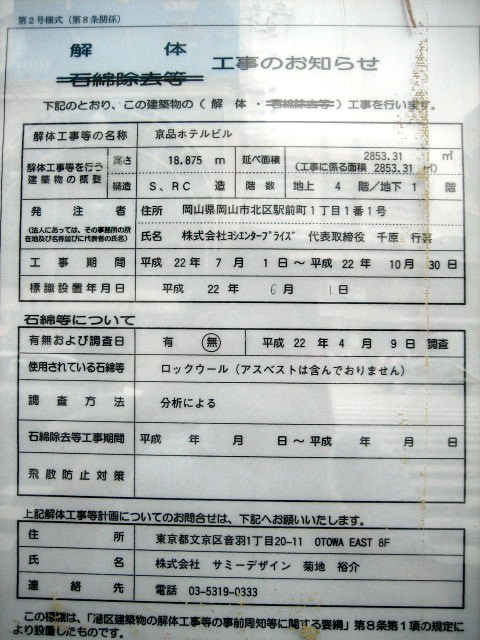 第2号様式（第8条関係）
解体
石綿除去等
工事のお知らせ
下記のとおり、この建築物の（解体・石綿除去等）工事を行います。
解体工事等の名称 京品ホテルビル
解体工事等を行う建築物の概要 高さ 18.875 m 延べ面積 2853.31 ㎡
（工事に係る面積 2853.31 ㎡）
構造 S、RC 造 階数 地上 4 階／地下 1 階
発注者 住所 岡山県岡山市北区駅前町1丁目1番1号
（法人にあっては、その事務所の所在地及び名称並びに代表者の氏名） 氏名 株式会社ヨシエンタープライズ 代表取締役 千原 行喜
工事期間 平成 22年 7月 1日～平成 22年 10月 30日
標識設置年月日 平成 22年 6月 1日
石綿等について
有無および調査日 有 無 平成 22年 4月 9日 調査
使用されている石綿等 ロックウール（アスベストは含んでおりません）
調査方法 分析による
石綿除去等工事期間 平成 年 月 日～平成 年 月 日
飛散防止対策
上記解体工事等計画についてのお問合せは、下記へお願いいたします。
住所 東京都文京区音羽1丁目20-11 OTOWA EAST 8F
氏名 株式会社 サミーデザイン 菊地 裕介
連絡先 電話 03-5319-0333
この標識は、「港区建築物の解体工事等の事前周知等に関する要綱」第8条第1項の規定に
より設置したものです。